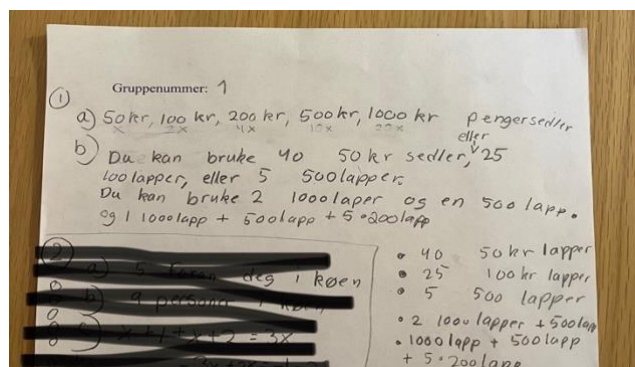 Gruppenummer: 1
1
a) 50kr, 100 kr, 200 kr, 500kr, 1000 kr pengersedler
x 2x 4x 10x 20x
eller
b) Du kan bruke 40 50 kr sedler, 25
100 lapper, eller 5 500lapper.
Du kan bruke 2 1000laper og en 500 lapp.
og 1 1000lapp + 500lapp + 5•200lapp
2
a) 5 foran deg i køen
b) 9 personer i køen
c) x+1+x+2 = 3x
• 40 50kr lapper
• 25 100 kr lapper
• 5 500 lapper
• 2 1000 lapper + 500lapp
• 1000lapp + 500lapp
+ 5•200lapp